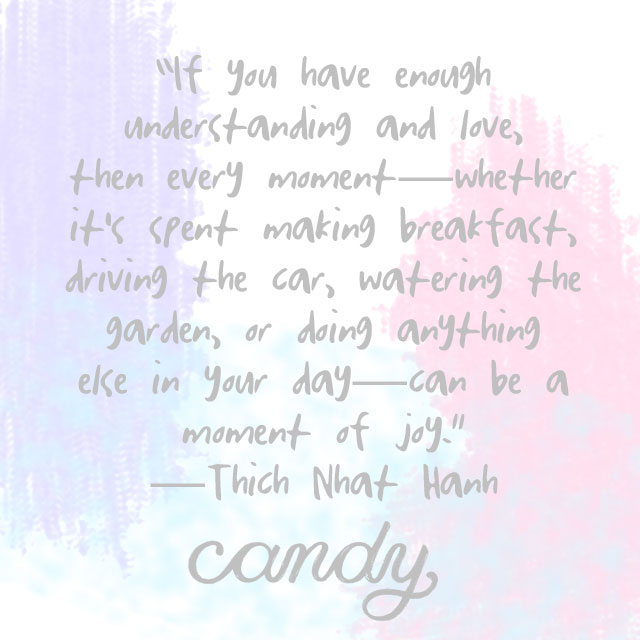 "If you have enough
understanding and love,
then every moment—whether
it's spent making breakfast,
driving the car, watering the
garden, or doing anything
else in your day—can be a
moment of joy."
—Thich Nhat Hanh
candy